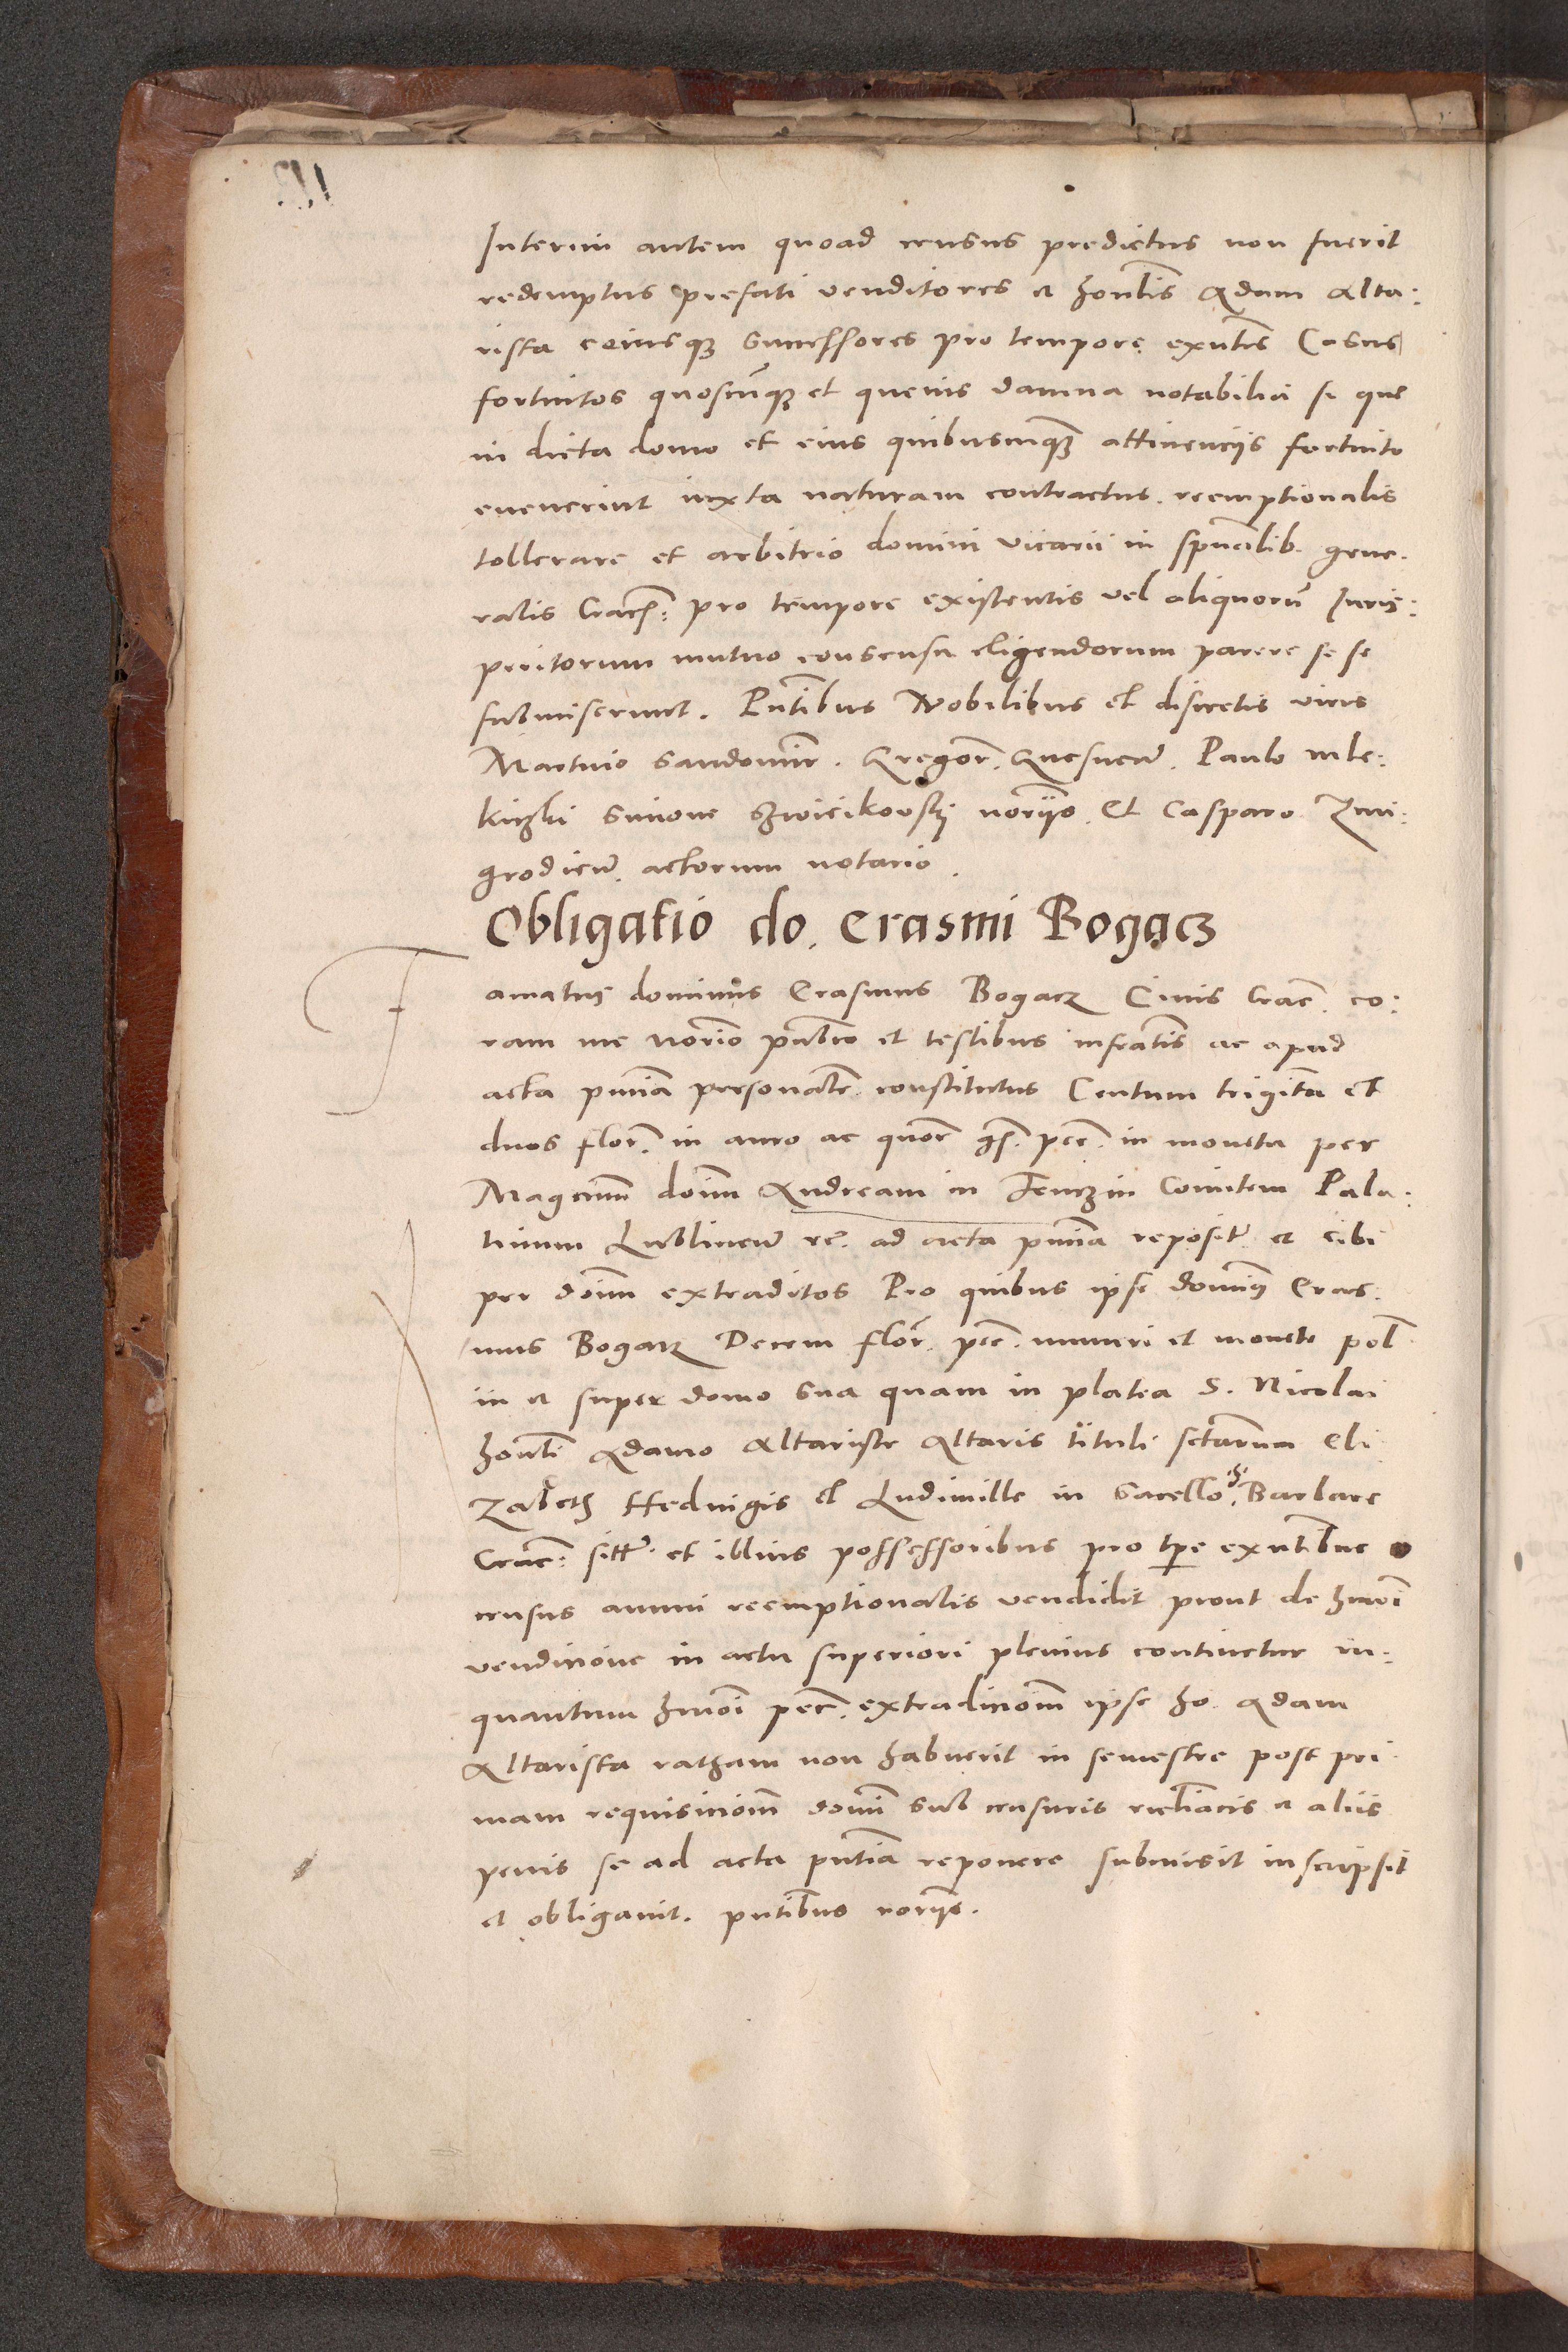 Interim autem quoad census predictus non fuerit
redemptus prefati venditores et honlis Adam Alta:
rista eiusque successores pro tempore exntes Casus
fortuitos quoscumque et quevis damna notabilia si que
in dicta domo et eius quibuscumque attinenciis fortuito
evenerint iuxta naturam contractus reemptionalis
tollerare et arbitrio domini vicarii in spualib. gene.
ralis Crac: pro tempore existentis vel aliquorum Iuris:
peritorum mutuo consensu eligendorum parere se se
submiserunt. Pntibus Nobilibus et discretis viris
Martino Sandomir. Gregor. Gnesnen. Paulo mle:
kiczki Simone Szwiecikovski noriis et Casparo Zmi:
grodien. actorum notario.
Obligatio do. Erasmi Bogacz
Famatus dominus Erasmus Bogacz Civis Crac. co:
ram me norio publico et testibus infratis ac apud
acta pntia personalr. constitutus Centum triginta et
duos flor. in auro ac quor. gs. pec. in moneta per
Magcum doim Andream in Tenczin Comitem Pala.
tinum Lublinen re. ad acta pntia reposit. et sibi
per doim extraditos Pro quibus ipse dominus Eras.
mus Bogacz Decem flor. pec. numeri et monete pol
in et super domo sua quam in platea S. Nicolai
honli Adamo Altariste Altaris tituli sctarum Eli
zabeth Hedvigis et Ludimille in Sacello S. Barbare
Crac: sitt. et illius possessoribus pro tpe exntibus
census annui reemptionalis vendidit prout de hmoi
vendicione in actu superiori plenius continetur in:
quantum hmoi pec. extradicioem ipse ho. Adam
Altarista ratham non habuerit in semestre post pri
mam requisicioem domi sub censuris ecliacis et aliis
penis se ad acta pntia reponere submisit inscripsit
et obligavit. pntibus noriis.